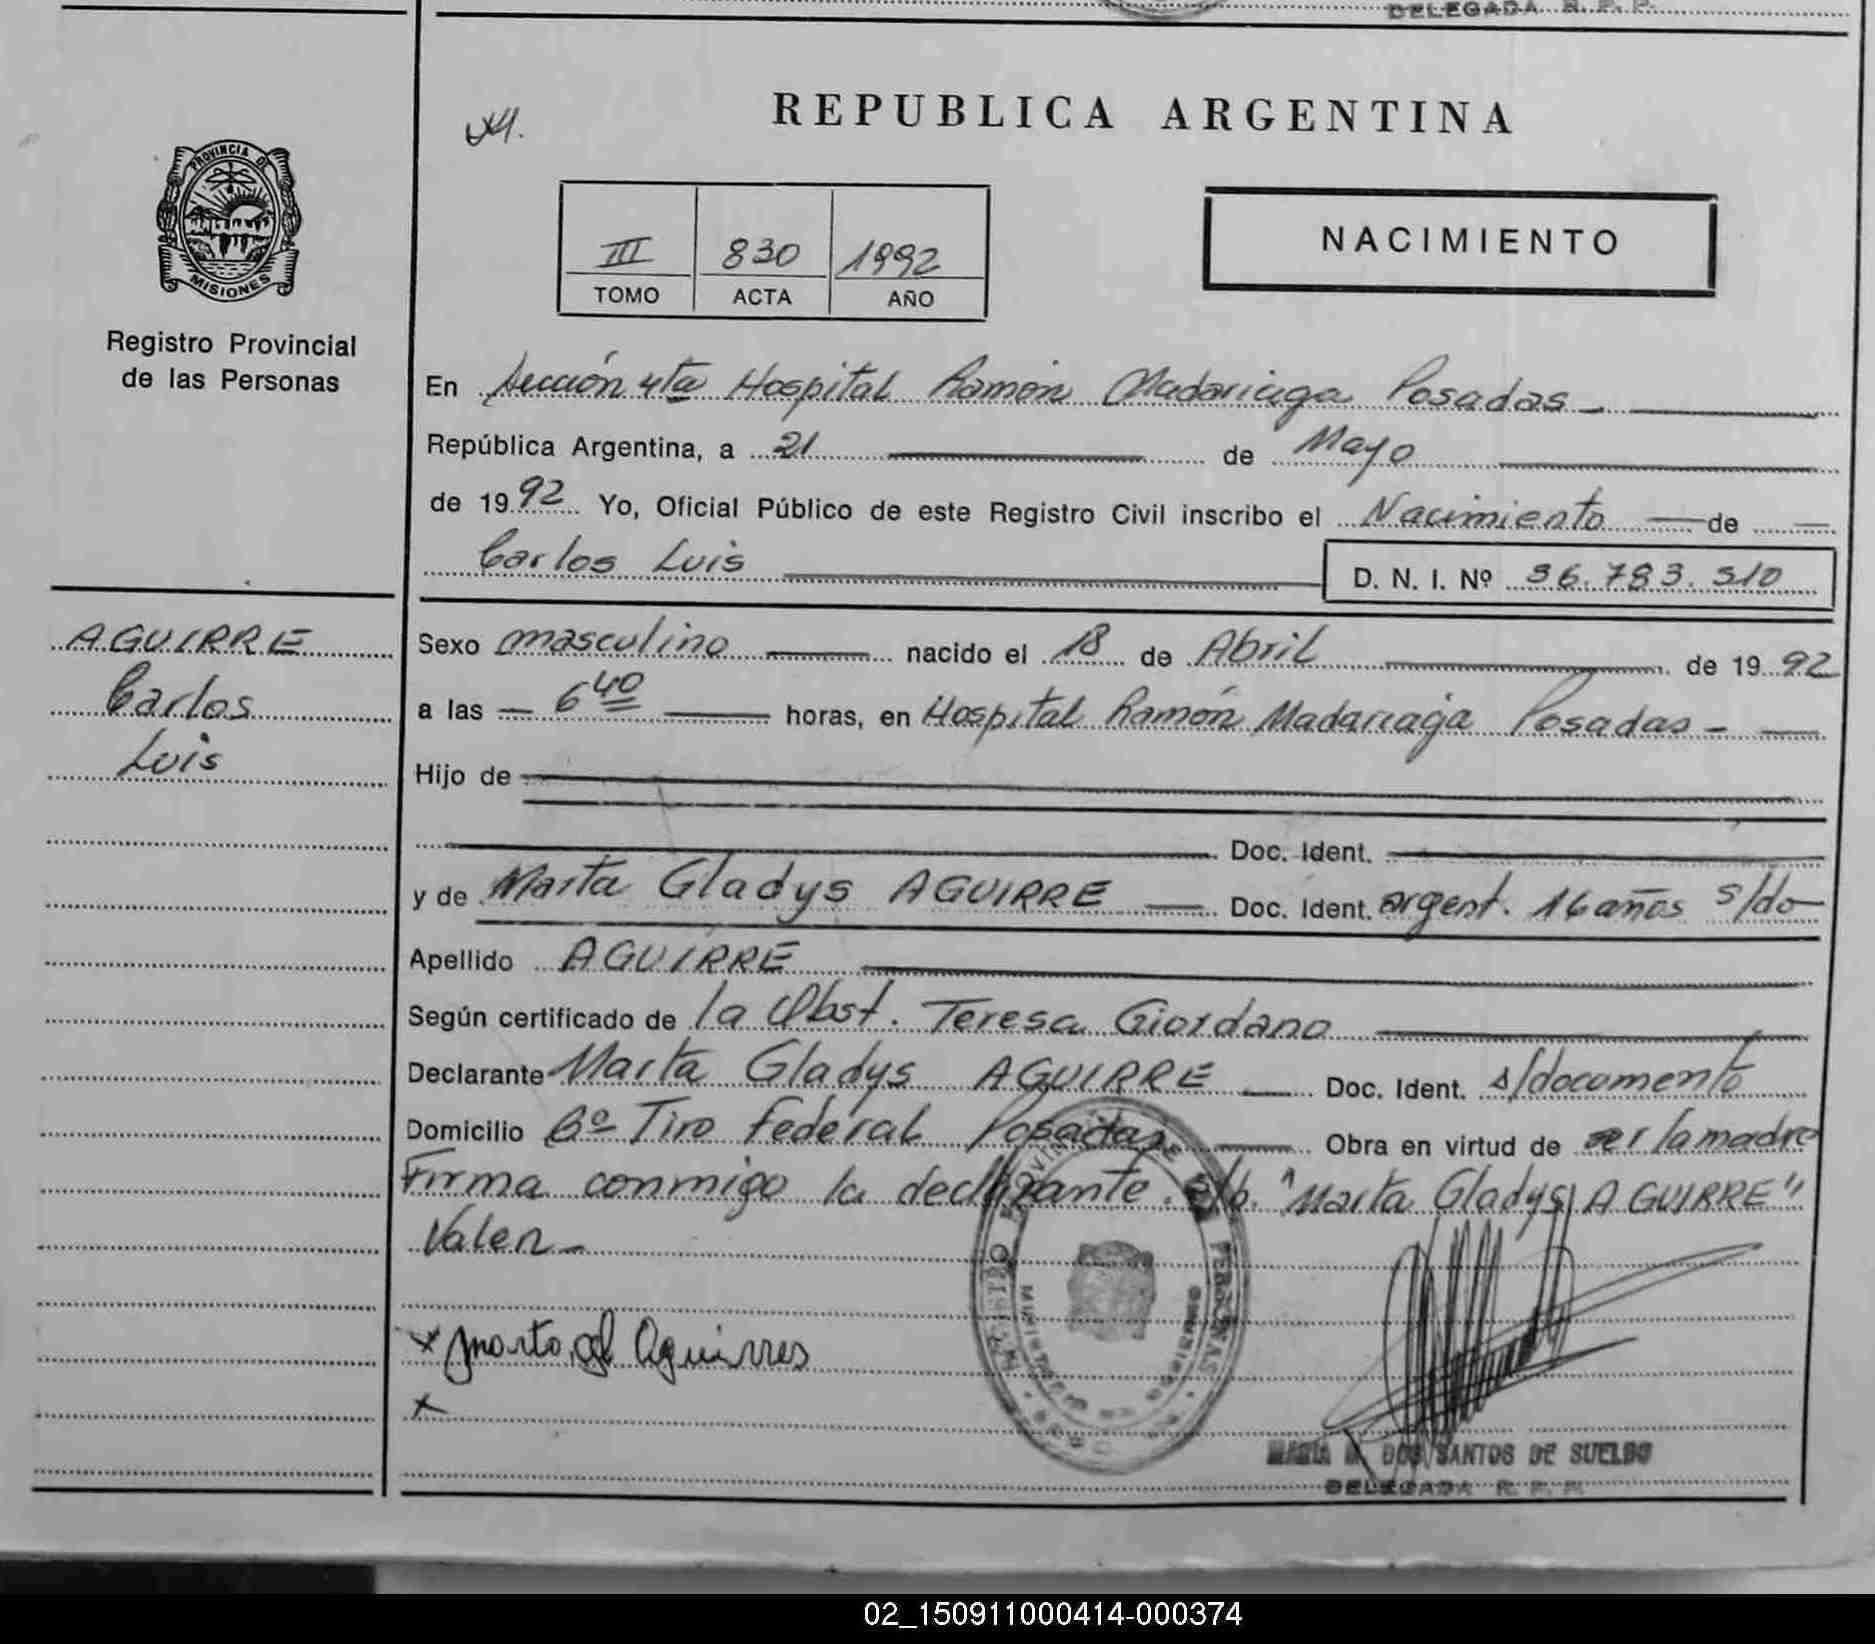 DELEGADA R. P. P.
REPUBLICA ARGENTINA
PROVINCIA DE
MISIONES
Registro Provincial
de las Personas
III 830 1992
TOMO ACTA AÑO
NACIMIENTO
En Sección 4ta Hospital Ramón Madariaga Posadas -
República Argentina, a 21 de Mayo
de 1992 Yo, Oficial Público de este Registro Civil inscribo el Nacimiento de
Carlos Luis D. N. I. Nº 36.783.310
AGUIRRE
Carlos
Luis
Sexo masculino nacido el 18 de Abril de 1992
a las 6 40 horas, en Hospital Ramón Madariaga Posadas -
Hijo de
Doc. Ident.
y de Marta Gladys AGUIRRE Doc. Ident. argent. 16 años s/do
Apellido AGUIRRE
Según certificado de la Obst. Teresa Giordano
Declarante Marta Gladys AGUIRRE Doc. Ident. s/documento
Domicilio Bº Tiro Federal Posadas Obra en virtud de ser la madre
Firma conmigo la declarante. S/b. "Marta Gladys AGUIRRE"
Valen -
x marta gl Aguirres
x
MARIA M. DOS SANTOS DE SUELDO
DELEGADA R. P. P.
02_150911000414-000374